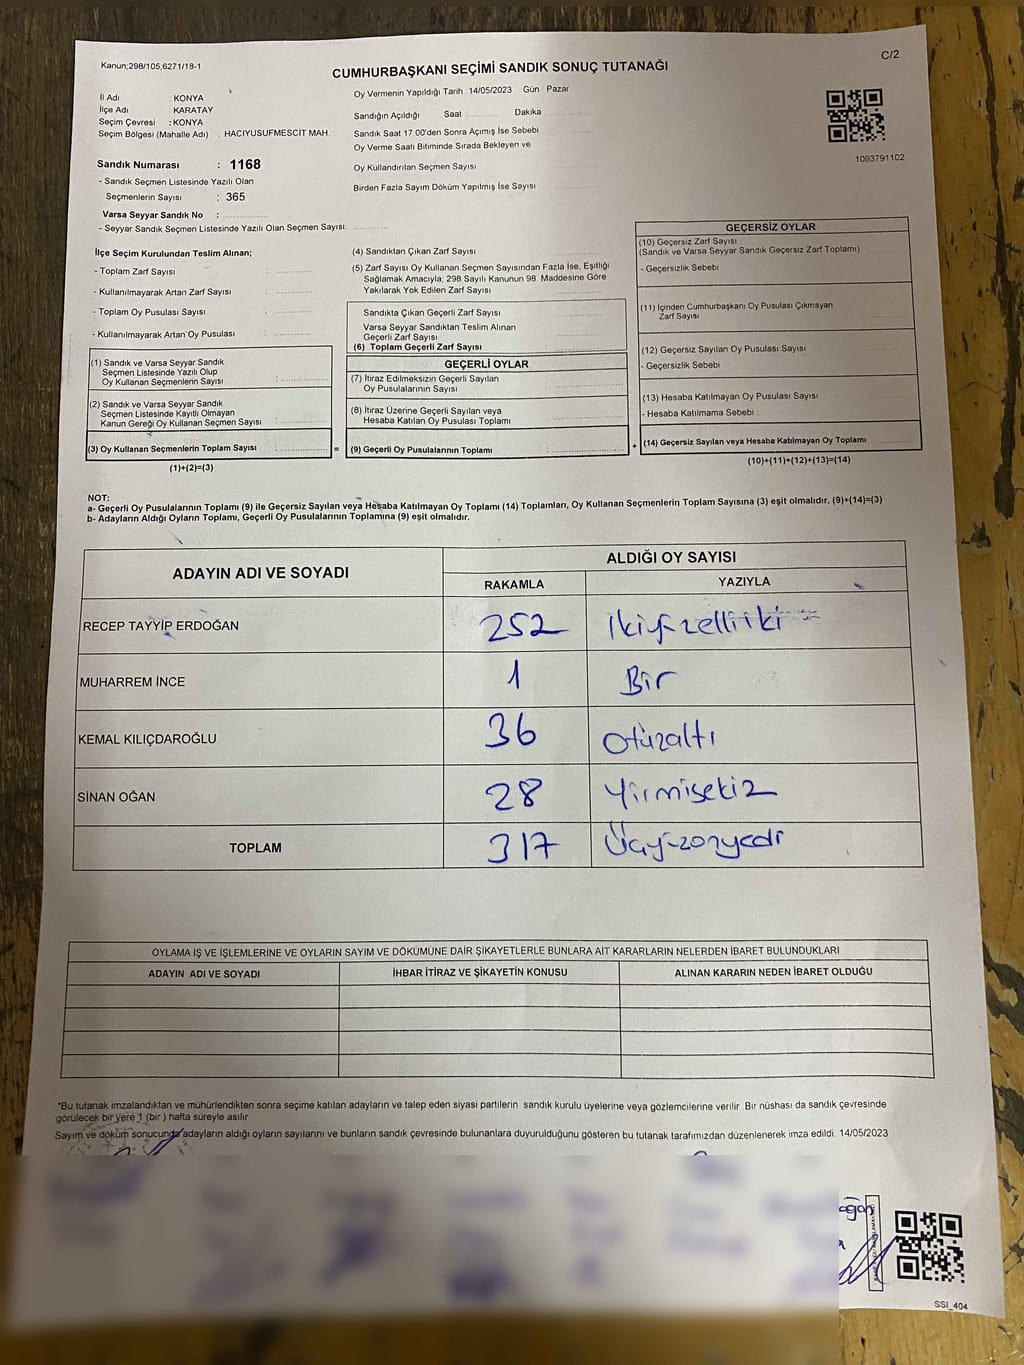 Kanun;298/105,6271/18-1
C/2
CUMHURBAŞKANI SEÇİMİ SANDIK SONUÇ TUTANAĞI
İl Adı : KONYA
İlçe Adı : KARATAY
Seçim Çevresi : KONYA
Seçim Bölgesi (Mahalle Adı) : HACIYUSUFMESCİT MAH.
Sandık Numarası : 1168
- Sandık Seçmen Listesinde Yazılı Olan
Seçmenlerin Sayısı : 365
Varsa Seyyar Sandık No :
- Seyyar Sandık Seçmen Listesinde Yazılı Olan Seçmen Sayısı:
Oy Vermenin Yapıldığı Tarih : 14/05/2023 Gün Pazar
Sandığın Açıldığı Saat : Dakika
Sandık Saat 17.00'den Sonra Açımış İse Sebebi
Oy Verme Saati Bitiminde Sırada Bekleyen ve
Oy Kullandırılan Seçmen Sayısı
Birden Fazla Sayım Döküm Yapılmış İse Sayısı
1093791102
İlçe Seçim Kurulundan Teslim Alınan;
- Toplam Zarf Sayısı :
- Kullanılmayarak Artan Zarf Sayısı :
- Toplam Oy Pusulası Sayısı :
- Kullanılmayarak Artan Oy Pusulası :
(1) Sandık ve Varsa Seyyar Sandık
Seçmen Listesinde Yazılı Olup
Oy Kullanan Seçmenlerin Sayısı :
(2) Sandık ve Varsa Seyyar Sandık
Seçmen Listesinde Kayıtlı Olmayan
Kanun Gereği Oy Kullanan Seçmen Sayısı :
(3) Oy Kullanan Seçmenlerin Toplam Sayısı : =
(1)+(2)=(3)
(4) Sandıktan Çıkan Zarf Sayısı
(5) Zarf Sayısı Oy Kullanan Seçmen Sayısından Fazla İse, Eşitliği
Sağlamak Amacıyla; 298 Sayılı Kanunun 98. Maddesine Göre
Yakılarak Yok Edilen Zarf Sayısı
Sandıkta Çıkan Geçerli Zarf Sayısı
Varsa Seyyar Sandıktan Teslim Alınan
Geçerli Zarf Sayısı
(6) Toplam Geçerli Zarf Sayısı
GEÇERLİ OYLAR
(7) İtiraz Edilmeksizin Geçerli Sayılan
Oy Pusulalarının Sayısı
(8) İtiraz Üzerine Geçerli Sayılan veya
Hesaba Katılan Oy Pusulası Toplamı
(9) Geçerli Oy Pusulalarının Toplamı : +
GEÇERSİZ OYLAR
(10) Geçersiz Zarf Sayısı
(Sandık ve Varsa Seyyar Sandık Geçersiz Zarf Toplamı)
- Geçersizlik Sebebi
(11) İçinden Cumhurbaşkanı Oy Pusulası Çıkmayan
Zarf Sayısı
(12) Geçersiz Sayılan Oy Pusulası Sayısı
- Geçersizlik Sebebi
(13) Hesaba Katılmayan Oy Pusulası Sayısı
- Hesaba Katılmama Sebebi :
(14) Geçersiz Sayılan veya Hesaba Katılmayan Oy Toplamı
(10)+(11)+(12)+(13)=(14)
NOT:
a- Geçerli Oy Pusulalarının Toplamı (9) ile Geçersiz Sayılan veya Hesaba Katılmayan Oy Toplamı (14) Toplamları, Oy Kullanan Seçmenlerin Toplam Sayısına (3) eşit olmalıdır. (9)+(14)=(3)
b- Adayların Aldığı Oyların Toplamı, Geçerli Oy Pusulalarının Toplamına (9) eşit olmalıdır.
ADAYIN ADI VE SOYADI
ALDIĞI OY SAYISI
RAKAMLA YAZIYLA
RECEP TAYYİP ERDOĞAN 252 İkiyüzelliiki
MUHARREM İNCE 1 Bir
KEMAL KILIÇDAROĞLU 36 Otuzaltı
SİNAN OĞAN 28 Yirmisekiz
TOPLAM 317 Üçyüzonyedi
OYLAMA İŞ VE İŞLEMLERİNE VE OYLARIN SAYIM VE DÖKÜMÜNE DAİR ŞİKAYETLERLE BUNLARA AİT KARARLARIN NELERDEN İBARET BULUNDUKLARI
ADAYIN ADI VE SOYADI İHBAR İTİRAZ VE ŞİKAYETİN KONUSU ALINAN KARARIN NEDEN İBARET OLDUĞU
*Bu tutanak imzalandıktan ve mühürlendikten sonra seçime katılan adayların ve talep eden siyasi partilerin sandık kurulu üyelerine veya gözlemcilerine verilir. Bir nüshası da sandık çevresinde
görülecek bir yere 1 (bir) hafta süreyle asılır.
Sayım ve döküm sonucunda adayların aldığı oyların sayılarını ve bunların sandık çevresinde bulunanlara duyurulduğunu gösteren bu tutanak tarafımızdan düzenlenerek imza edildi. 14/05/2023
SSI_404